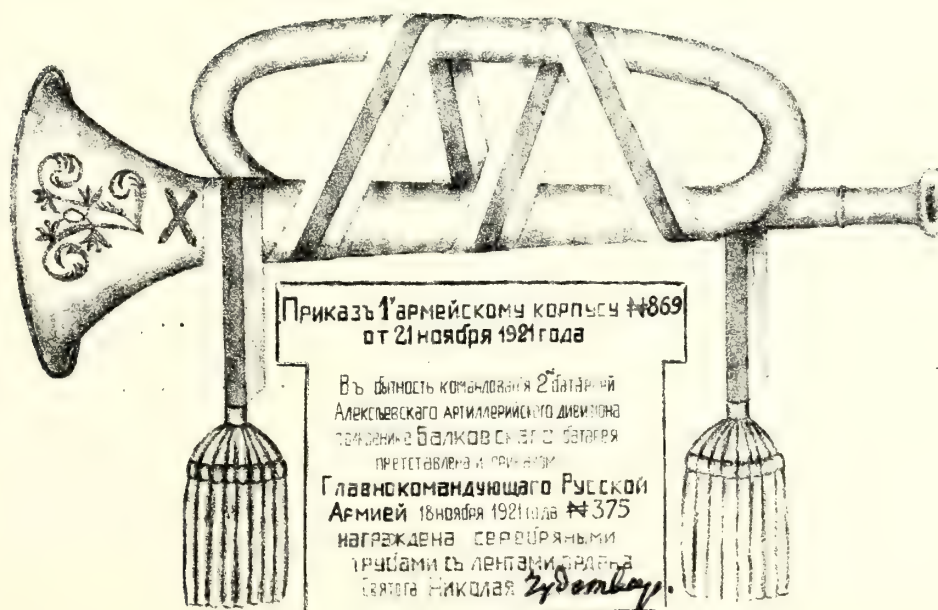 Приказъ 1го армейскому корпусу №869
от 21 ноября 1921 года
Въ бытность командования 2ой батареей
Алексѣевскаго артиллерийского дивизиона
Балковскаго батарея
претставлена и приказом
Главнокомандующаго Русской
Армией 18 ноября 1921 года №375
награждена серебряными
трубами съ лентами ордена
Святога Николая Чудотвор.